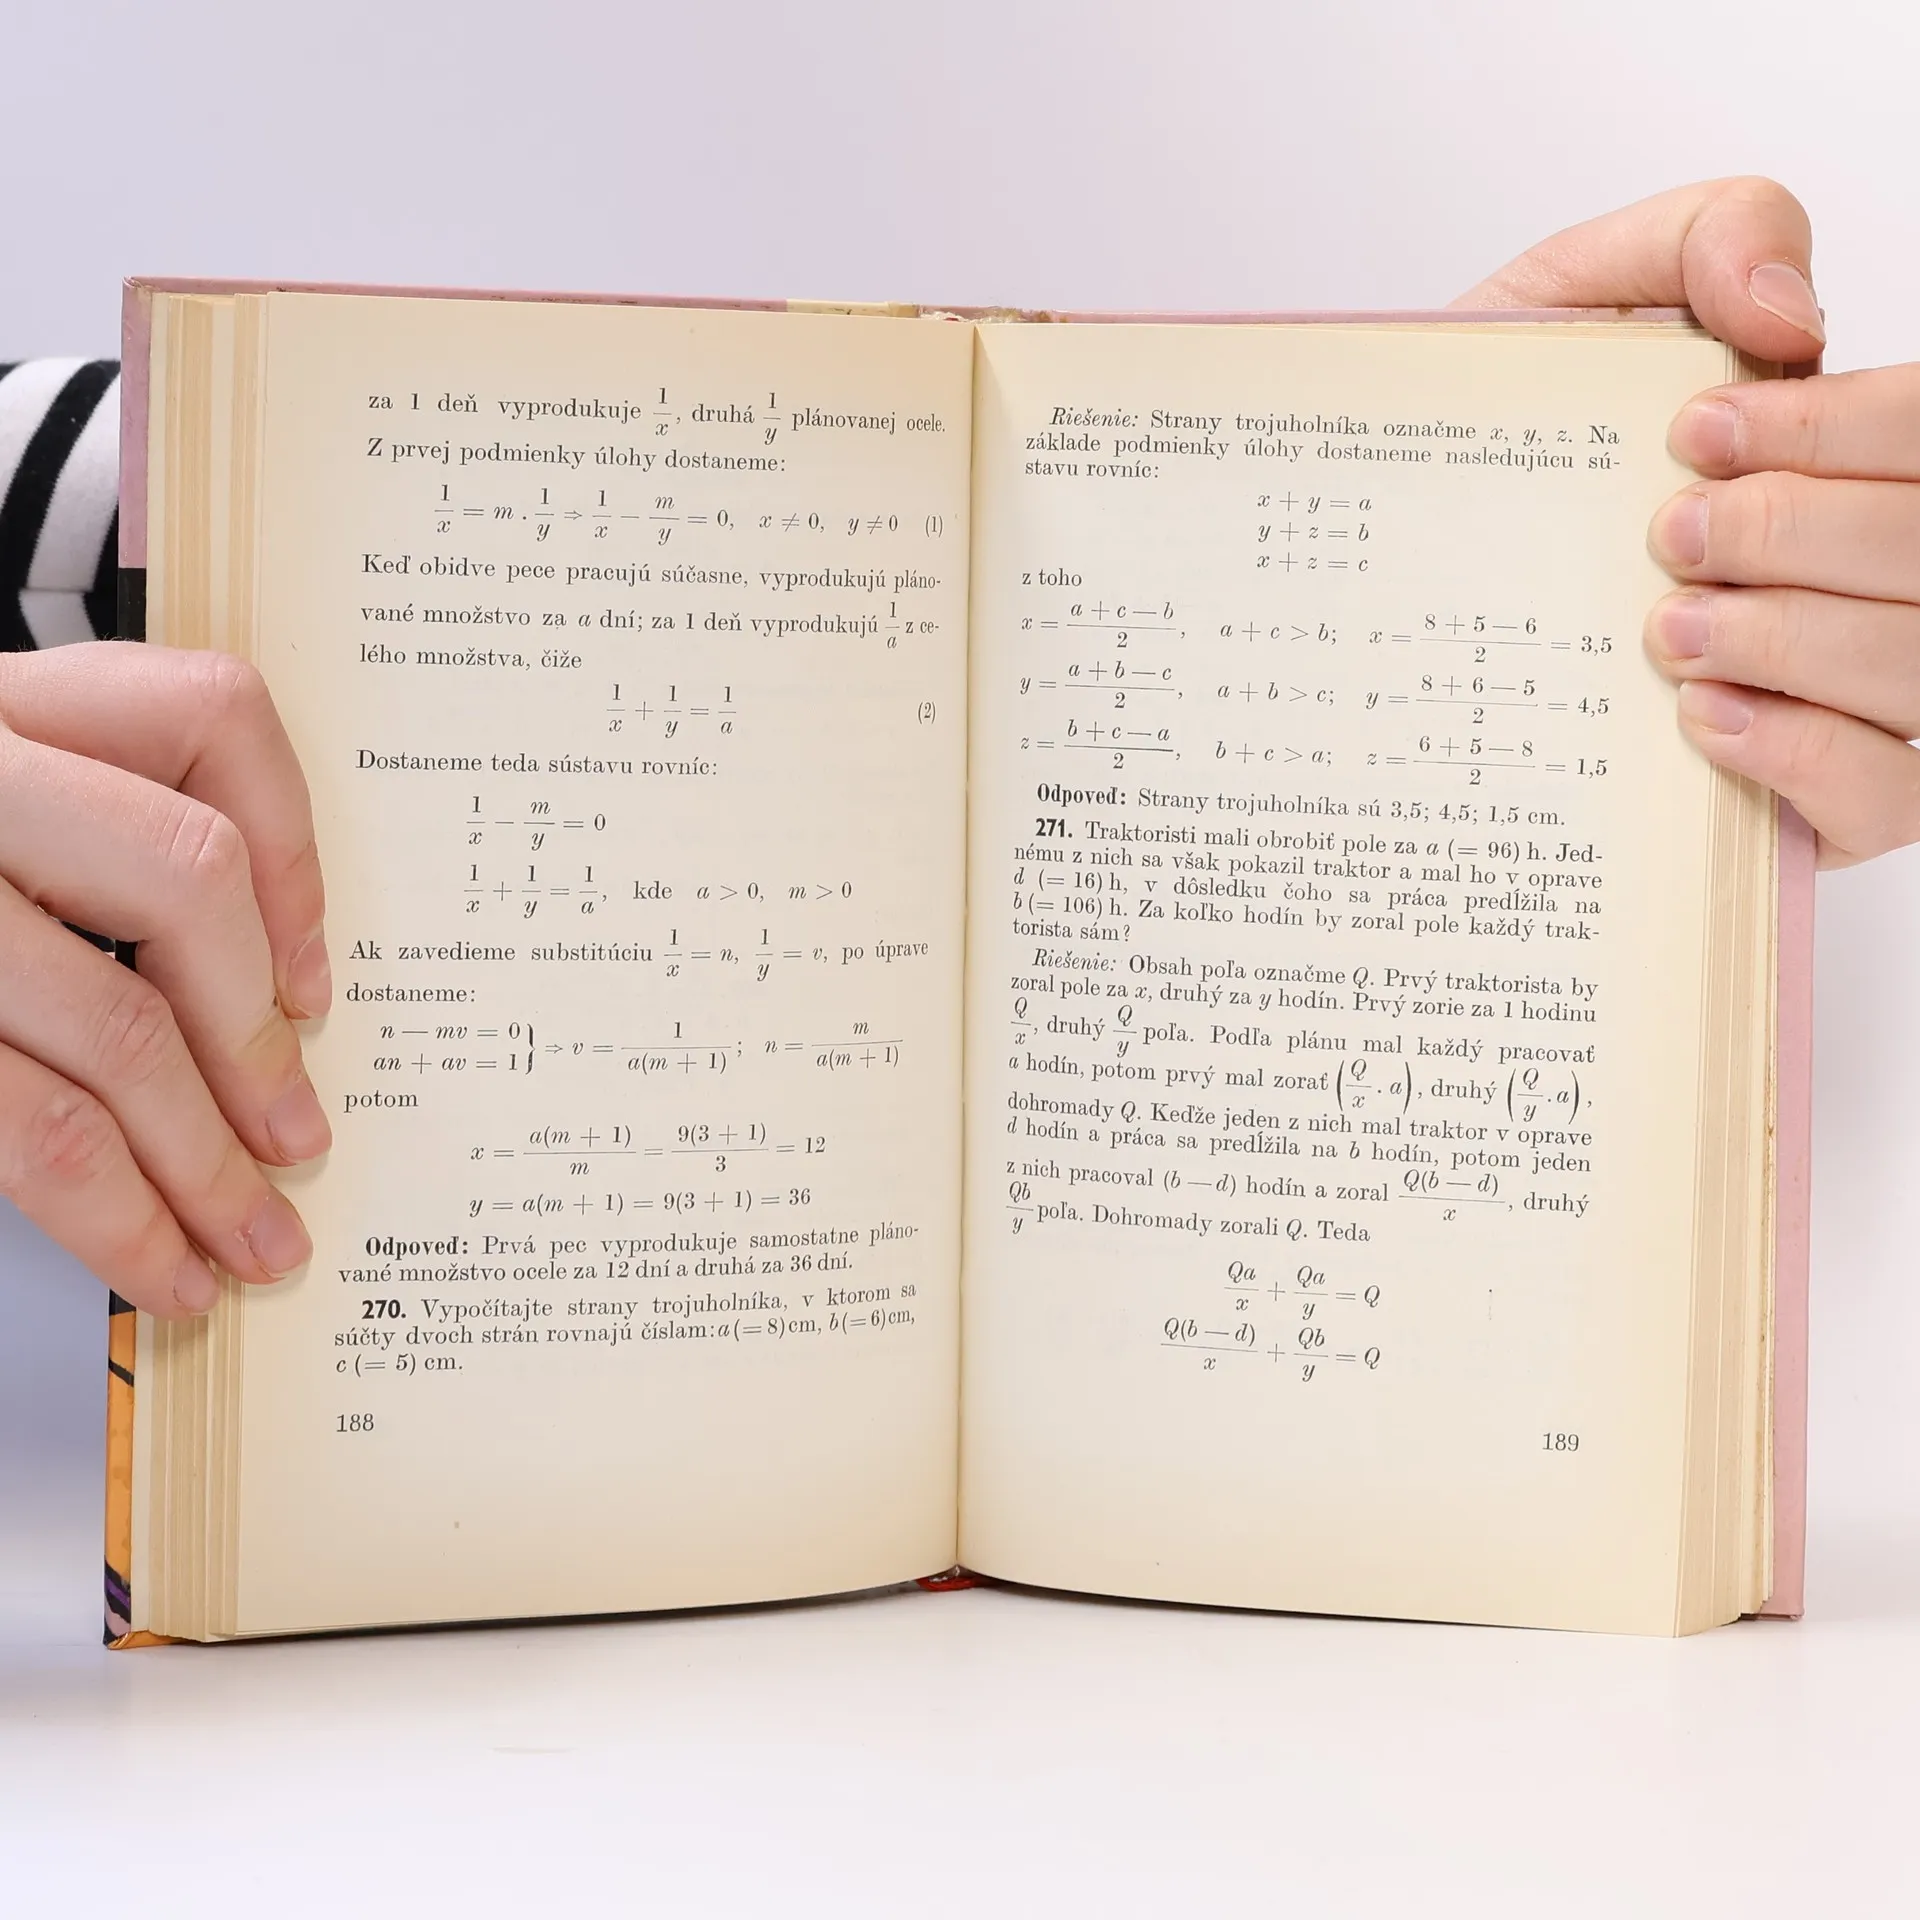 za 1 deň vyprodukuje 1/x, druhá 1/y plánovanej ocele.
Z prvej podmienky úlohy dostaneme:
1/x = m . 1/y ⇒ 1/x — m/y = 0, x ≠ 0, y ≠ 0 (1)
Keď obidve pece pracujú súčasne, vyprodukujú pláno-
vané množstvo za a dní; za 1 deň vyprodukujú 1/a z ce-
lého množstva, čiže
1/x + 1/y = 1/a (2)
Dostaneme teda sústavu rovníc:
1/x — m/y = 0
1/x + 1/y = 1/a, kde a > 0, m > 0
Ak zavedieme substitúciu 1/x = n, 1/y = v, po úprave
dostaneme:
n — mv = 0
an + av = 1 } ⇒ v = 1/(a(m + 1)); n = m/(a(m + 1))
potom
x = a(m + 1)/m = 9(3 + 1)/3 = 12
y = a(m + 1) = 9(3 + 1) = 36
Odpoveď: Prvá pec vyprodukuje samostatne pláno-
vané množstvo ocele za 12 dní a druhá za 36 dní.
270. Vypočítajte strany trojuholníka, v ktorom sa
súčty dvoch strán rovnajú číslam: a (= 8) cm, b (= 6) cm,
c (= 5) cm.
188
Riešenie: Strany trojuholníka označme x, y, z. Na
základe podmienky úlohy dostaneme nasledujúcu sú-
stavu rovníc:
x + y = a
y + z = b
x + z = c
z toho
x = (a + c — b)/2, a + c > b; x = (8 + 5 — 6)/2 = 3,5
y = (a + b — c)/2, a + b > c; y = (8 + 6 — 5)/2 = 4,5
z = (b + c — a)/2, b + c > a; z = (6 + 5 — 8)/2 = 1,5
Odpoveď: Strany trojuholníka sú 3,5; 4,5; 1,5 cm.
271. Traktoristi mali obrobiť pole za a (= 96) h. Jed-
nému z nich sa však pokazil traktor a mal ho v oprave
d (= 16) h, v dôsledku čoho sa práca predĺžila na
b (= 106) h. Za koľko hodín by zoral pole každý trak-
torista sám?
Riešenie: Obsah poľa označme Q. Prvý traktorista by
zoral pole za x, druhý za y hodín. Prvý zorie za 1 hodinu
Q/x, druhý Q/y poľa. Podľa plánu mal každý pracovať
a hodín, potom prvý mal zorať (Q/x . a), druhý (Q/y . a),
dohromady Q. Keďže jeden z nich mal traktor v oprave
d hodín a práca sa predĺžila na b hodín, potom jeden
z nich pracoval (b — d) hodín a zoral Q(b — d)/x, druhý
Qb/y poľa. Dohromady zorali Q. Teda
Qa/x + Qa/y = Q
Q(b — d)/x + Qb/y = Q
189